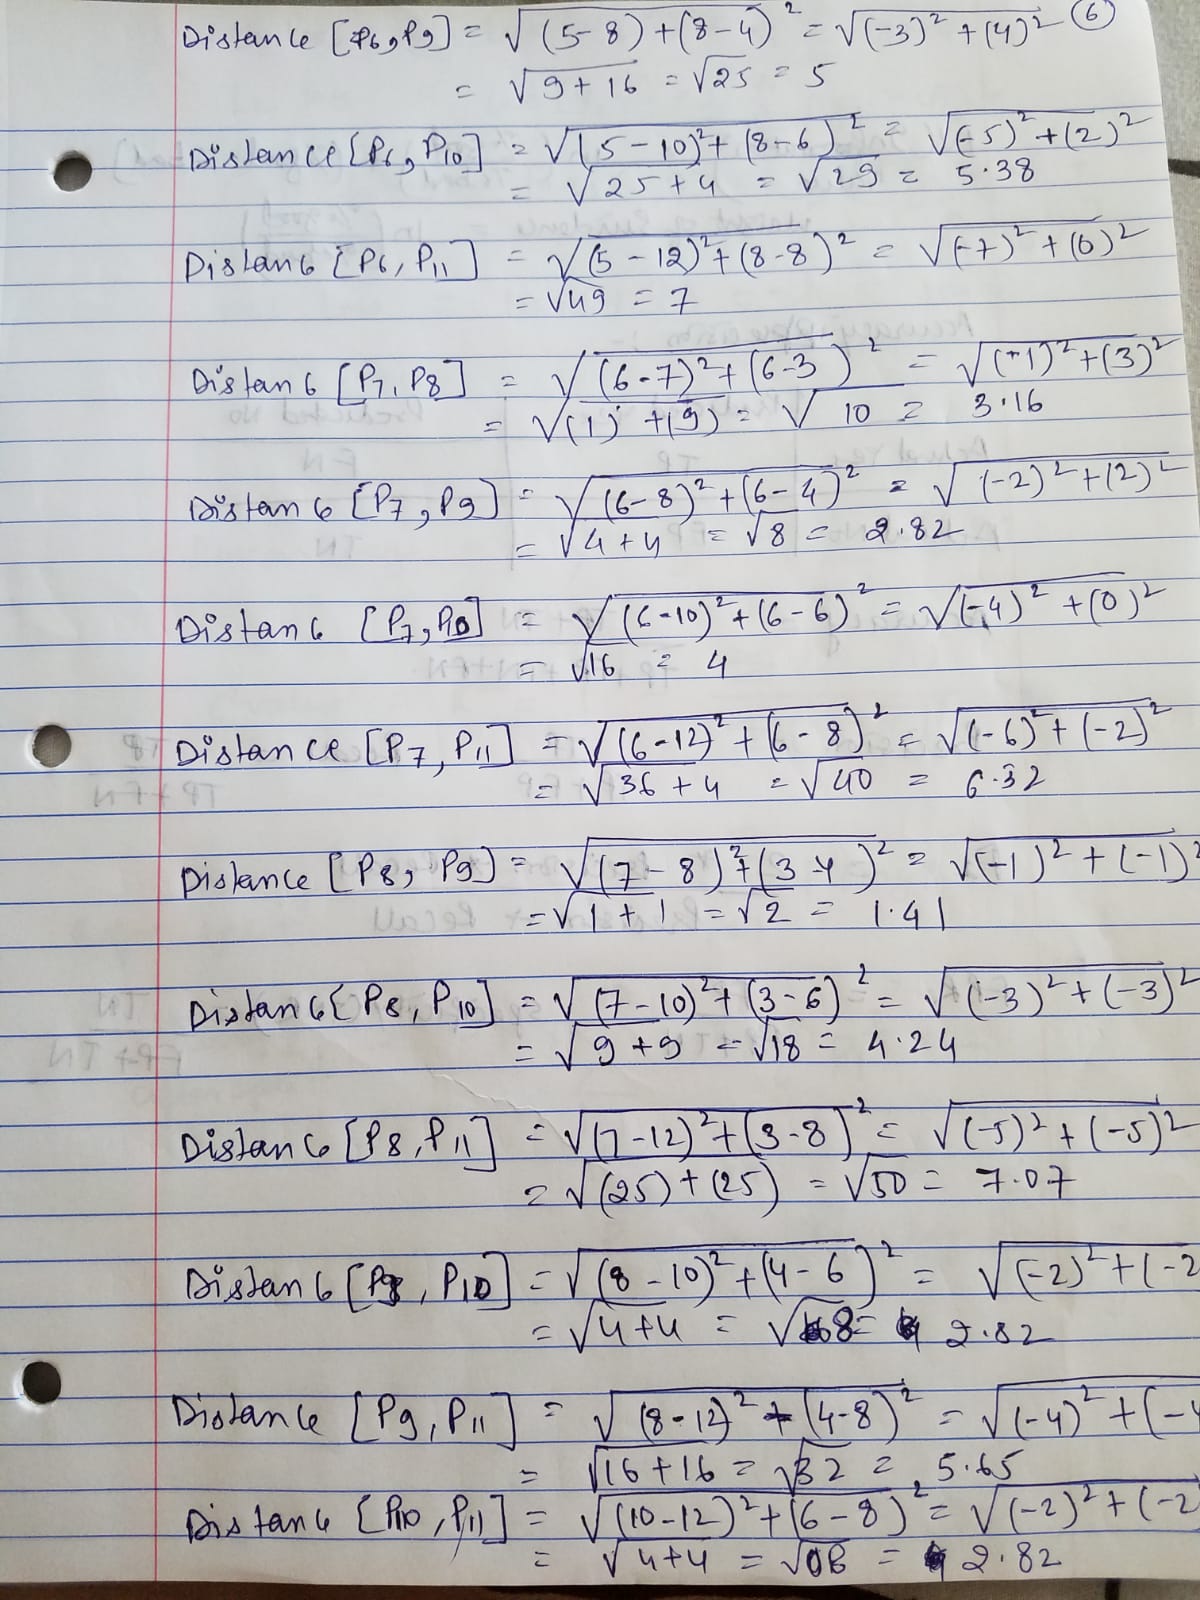 Distance [P6, P9] = √(5-8)+(8-4)² = √(-3)²+(4)² ⑥
= √9+16 = √25 = 5
Distance [P6, P10] = √(5-10)²+(8-6)² = √(-5)²+(2)²
= √25+4 = √29 = 5.38
Distance [P6, P11] = √(5-12)²+(8-8)² = √(-7)²+(0)²
= √49 = 7
Distance [P7, P8] = √(6-7)²+(6-3)² = √(-1)²+(3)²
= √(1)+(9) = √10 = 3.16
Distance [P7, P9] = √(6-8)²+(6-4)² = √(-2)²+(2)²
= √4+4 = √8 = 2.82
Distance [P7, P10] = √(6-10)²+(6-6)² = √(-4)²+(0)²
= √16 = 4
Distance [P7, P11] = √(6-12)²+(6-8)² = √(-6)²+(-2)²
= √36+4 = √40 = 6.32
Distance [P8, P9] = √(7-8)²+(3-4)² = √(-1)²+(-1)²
= √1+1 = √2 = 1.41
Distance [P8, P10] = √(7-10)²+(3-6)² = √(-3)²+(-3)²
= √9+9 = √18 = 4.24
Distance [P8, P11] = √(7-12)²+(3-8)² = √(-5)²+(-5)²
= √(25)+(25) = √50 = 7.07
Distance [P9, P10] = √(8-10)²+(4-6)² = √(-2)²+(-2
= √4+4 = √8 = 2.82
Distance [P9, P11] = √(8-12)²+(4-8)² = √(-4)²+(-4
= √16+16 = √32 = 5.65
Distance [P10, P11] = √(10-12)²+(6-8)² = √(-2)²+(-2
= √4+4 = √08 = 2.82